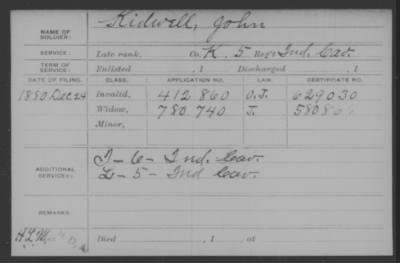 NAME OF SOLDIER: Kidwell, John
SERVICE: Late rank, Co. K, 5 Reg't Ind. Cav.
TERM OF SERVICE: Enlisted , 1 Discharged , 1
DATE OF FILING. CLASS. APPLICATION NO. LAW. CERTIFICATE NO.
1880 Dec 24 Invalid, 412 860 O.J. 629030
Widow, 780.740 J.
Minor,
ADDITIONAL SERVICES: I-6-Ind. Cav.
L-5-Ind Cav.
REMARKS:
Died , 1 , at